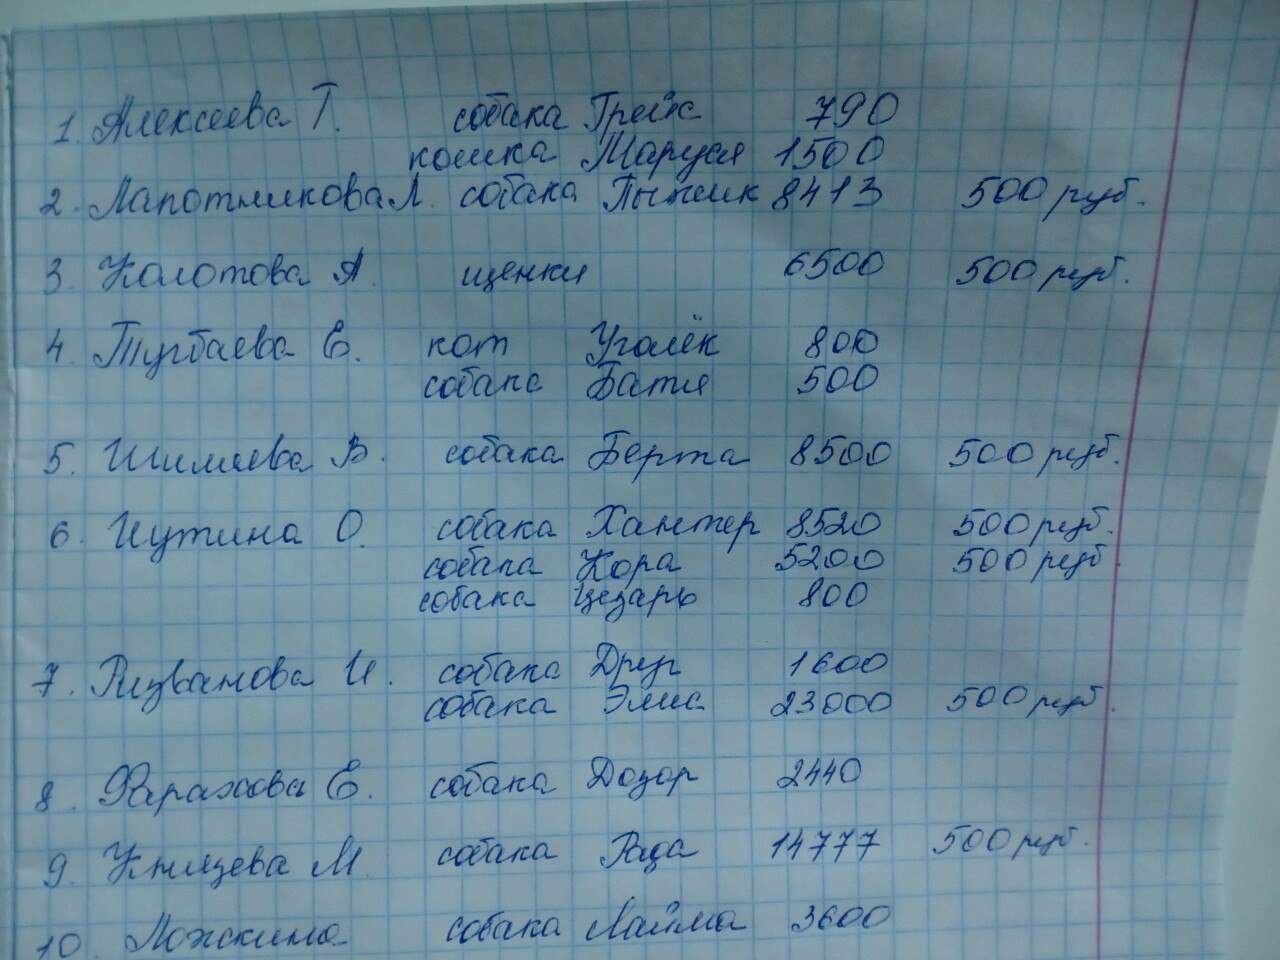 1. Алексеева Т. собака Грейс 790
кошка Маруся 1500
2. Лапотникова Л. собака Пыжик 8413 500 руб.
3. Колотова А. щенки 6500 500 руб.
4. Тугбаева Е. кот Уголёк 800
собака Батя 500
5. Шиляева В. собака Берта 8500 500 руб.
6. Шутина О. собака Хантер 8520 500 руб.
собака Кора 5200 500 руб
собака Цезарь 800
7. Ризванова И. собака Друг 1600
собака Элис 23000 500 руб.
8. Фарахова Е. собака Дозор 2440
9. Князева М. собака Рада 14777 500 руб.
10. Ложкина собака Лайма 3600